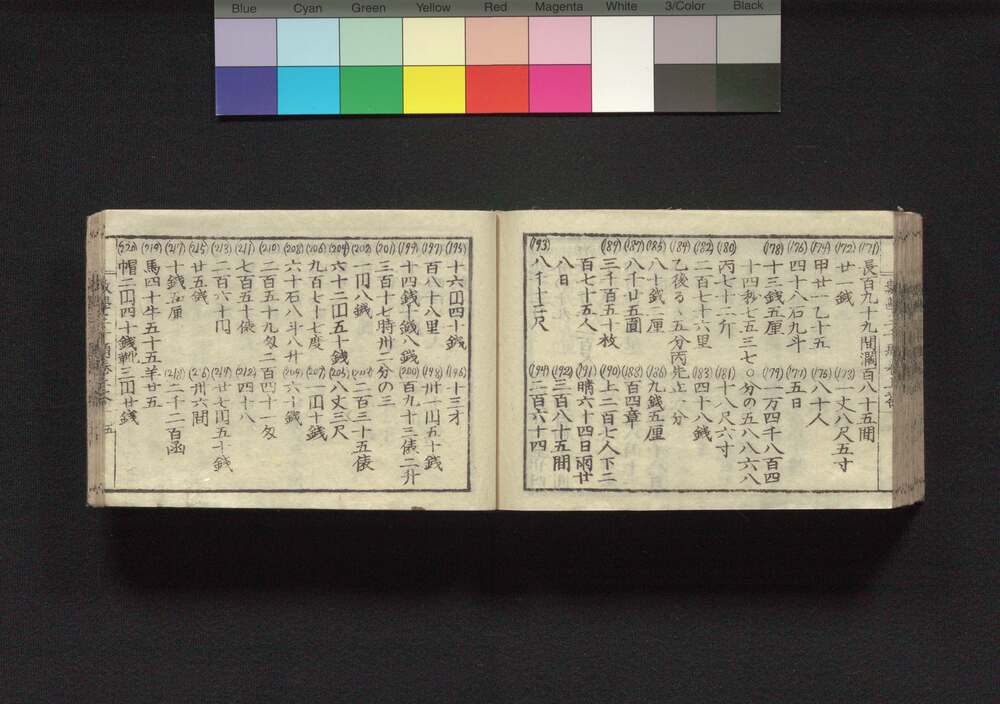 Blue Cyan Green Yellow Red Magenta White 3/Color Black
(171) 長百九十九間濶百八十五間
(172) 廿一錢 (173) 一丈八尺五寸
(174) 甲廿一乙十五
(176) 四十八石九斗 (176) 八十人
(177) 五日
(178) 十三錢五厘 (179) 一万四千八百四
十四秒七五三七〇分の五八八六八
(180) 丙七十二斤 (181) 十八尺六寸
(182) 二百七十六里 (183) 四十八錢
(184) 乙後るゝ五分丙先立一分
(185) 八十錢二厘 (186) 九錢五厘
(187) 八千廿五圓 (188) 百四章
(189) 三千百五十枚 (190) 上二百七人下二
百七十五人 (191) 晴六十四日雨廿
八日 (192) 三百八十五間
(193) 八千十二尺 (194) 二百六十四
(195) 十六円四十錢 (196) 十三才
(197) 百八十八里 (198) 卅一円五十錢
(199) 十四錢十錢八錢 (200) 百九十三俵二升
(201) 三百十七時卅二分の三
(202) 一円八錢 (203) 二百三十五俵
(204) 六十二円五十錢 (205) 八丈三尺
(206) 九百七十七度 (207) 一円十錢
(208) 六十石八斗八升 (209) 六十錢
(210) 二百五十九匁二百四十一匁
(211) 七百五十俵 (212) 四十八
(213) 二百六十円 (214) 廿七円五十錢
(215) 廿五錢 (216) 卅六間
(217) 十錢五厘 (218) 二千二百函
(219) 馬四十牛五十五羊廿五
(220) 帽二円四十錢靴三円廿錢
五